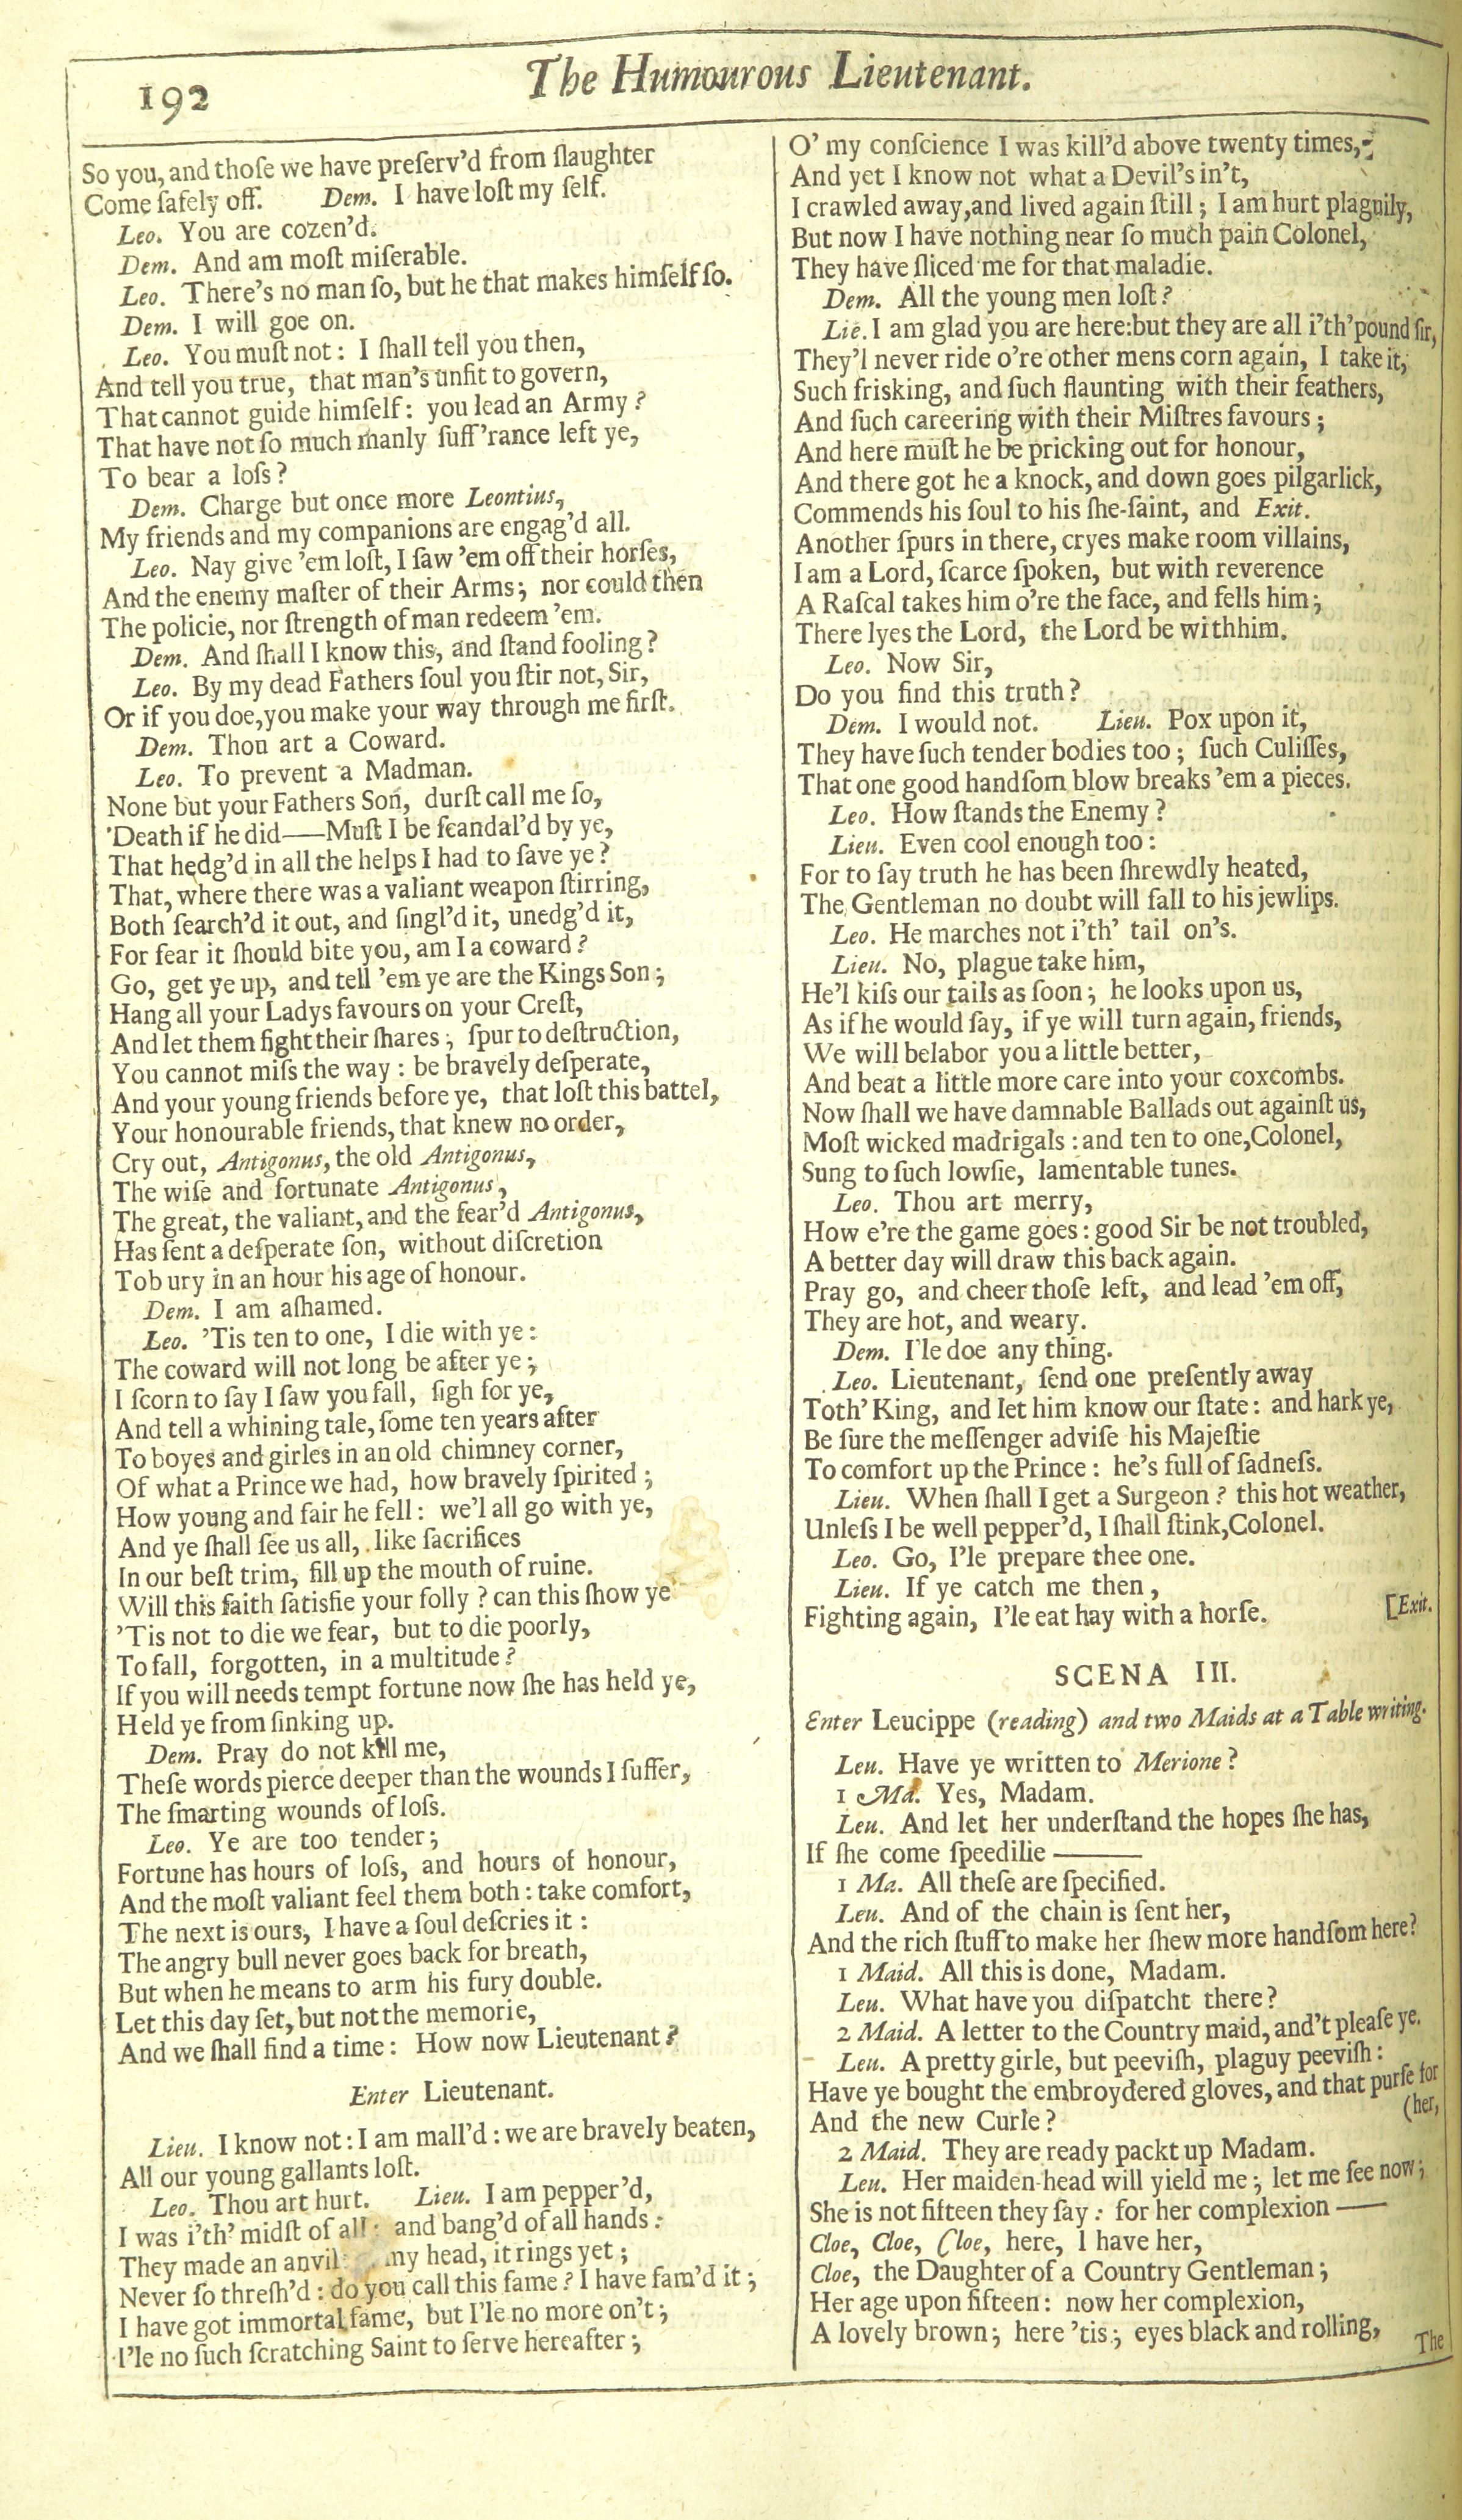 192
The Humourous Lieutenant.
So you, and thoſe we have preſerv'd from ſlaughter
Come ſafely off. Dem. I have loſt my ſelf.
Leo. You are cozen'd.
Dem. And am moſt miſerable.
Leo. There's no man ſo, but he that makes himſelf ſo.
Dem. I will goe on.
Leo. You muſt not: I ſhall tell you then,
And tell you true, that man's unfit to govern,
That cannot guide himſelf: you lead an Army?
That have not ſo much manly ſuff'rance left ye,
To bear a loſs?
Dem. Charge but once more Leontius,
My friends and my companions are engag'd all.
Leo. Nay give 'em loſt, I ſaw 'em off their horſes,
And the enemy maſter of their Arms; nor could then
The policie, nor ſtrength of man redeem 'em.
Dem. And ſhall I know this, and ſtand fooling?
Leo. By my dead Fathers ſoul you ſtir not, Sir,
Or if you doe,you make your way through me firſt.
Dem. Thou art a Coward.
Leo. To prevent a Madman.
None but your Fathers Son, durſt call me ſo,
'Death if he did——Muſt I be ſcandal'd by ye,
That hedg'd in all the helps I had to ſave ye?
That, where there was a valiant weapon ſtirring,
Both ſearch'd it out, and ſingl'd it, unedg'd it,
For fear it ſhould bite you, am I a coward?
Go, get ye up, and tell 'em ye are the Kings Son;
Hang all your Ladys favours on your Creſt,
And let them fight their ſhares; ſpur to deſtruction,
You cannot miſs the way: be bravely deſperate,
And your young friends before ye, that loſt this battel,
Your honourable friends, that knew no order,
Cry out, Antigonus, the old Antigonus,
The wiſe and fortunate Antigonus,
The great, the valiant, and the fear'd Antigonus,
Has ſent a deſperate ſon, without diſcretion
Tob ury in an hour his age of honour.
Dem. I am aſhamed.
Leo. 'Tis ten to one, I die with ye:
The coward will not long be after ye;
I ſcorn to ſay I ſaw you fall, ſigh for ye,
And tell a whining tale, ſome ten years after
To boyes and girles in an old chimney corner,
Of what a Prince we had, how bravely ſpirited;
How young and fair he fell: we'l all go with ye,
And ye ſhall ſee us all, like ſacrifices
In our beſt trim, fill up the mouth of ruine.
Will this faith ſatisfie your folly? can this ſhow ye
'Tis not to die we fear, but to die poorly,
To fall, forgotten, in a multitude?
If you will needs tempt fortune now ſhe has held ye,
Held ye from ſinking up.
Dem. Pray do not kill me,
Theſe words pierce deeper than the wounds I ſuffer,
The ſmarting wounds of loſs.
Leo. Ye are too tender;
Fortune has hours of loſs, and hours of honour,
And the moſt valiant feel them both: take comfort,
The next is ours, I have a ſoul deſcries it:
The angry bull never goes back for breath,
But when he means to arm his fury double.
Let this day ſet, but not the memorie,
And we ſhall find a time: How now Lieutenant?
Enter Lieutenant.
Lieu. I know not: I am mall'd: we are bravely beaten,
All our young gallants loſt.
Leo. Thou art hurt. Lieu. I am pepper'd,
I was i'th' midſt of all: and bang'd of all hands:
They made an anvil my head, it rings yet;
Never ſo threſh'd: do you call this fame? I have fam'd it;
I have got immortal fame, but I'le no more on't;
I'le no ſuch ſcratching Saint to ſerve hereafter;
O' my conſcience I was kill'd above twenty times,
And yet I know not what a Devil's in't,
I crawled away,and lived again ſtill; I am hurt plaguily,
But now I have nothing near ſo much pain Colonel,
They have ſliced me for that maladie.
Dem. All the young men loſt?
Lie. I am glad you are here:but they are all i'th'pound ſir,
They'l never ride o're other mens corn again, I take it,
Such frisking, and ſuch flaunting with their feathers,
And ſuch careering with their Miſtres favours;
And here muſt he be pricking out for honour,
And there got he a knock, and down goes pilgarlick,
Commends his ſoul to his ſhe-ſaint, and Exit.
Another ſpurs in there, cryes make room villains,
I am a Lord, ſcarce ſpoken, but with reverence
A Raſcal takes him o're the face, and fells him;
There lyes the Lord, the Lord be withhim.
Leo. Now Sir,
Do you find this truth?
Dem. I would not. Lieu. Pox upon it,
They have ſuch tender bodies too; ſuch Culiſſes,
That one good handſom blow breaks 'em a pieces.
Leo. How ſtands the Enemy?
Lieu. Even cool enough too:
For to ſay truth he has been ſhrewdly heated,
The Gentleman no doubt will fall to his jewlips.
Leo. He marches not i'th' tail on's.
Lieu. No, plague take him,
He'l kiſs our tails as ſoon; he looks upon us,
As if he would ſay, if ye will turn again, friends,
We will belabor you a little better,
And beat a little more care into your coxcombs.
Now ſhall we have damnable Ballads out againſt us,
Moſt wicked madrigals: and ten to one,Colonel,
Sung to ſuch lowſie, lamentable tunes.
Leo. Thou art merry,
How e're the game goes: good Sir be not troubled,
A better day will draw this back again.
Pray go, and cheer thoſe left, and lead 'em off,
They are hot, and weary.
Dem. I'le doe any thing.
Leo. Lieutenant, ſend one preſently away
Toth' King, and let him know our ſtate: and hark ye,
Be ſure the meſſenger adviſe his Majeſtie
To comfort up the Prince: he's full of ſadneſs.
Lieu. When ſhall I get a Surgeon? this hot weather,
Unleſs I be well pepper'd, I ſhall ſtink,Colonel.
Leo. Go, I'le prepare thee one.
Lieu. If ye catch me then,
Fighting again, I'le eat hay with a horſe. [Exit.
SCENA III.
Enter Leucippe (reading) and two Maids at a Table writing.
Leu. Have ye written to Merione?
1 Ma. Yes, Madam.
Leu. And let her underſtand the hopes ſhe has,
If ſhe come ſpeedilie ——
1 Ma. All theſe are ſpecified.
Leu. And of the chain is ſent her,
And the rich ſtuff to make her ſhew more handſom here?
1 Maid. All this is done, Madam.
Leu. What have you diſpatcht there?
2 Maid. A letter to the Country maid, and't pleaſe ye.
Leu. A pretty girle, but peeviſh, plaguy peeviſh:
Have ye bought the embroydered gloves, and that purſe for
(her,
And the new Curle?
2 Maid. They are ready packt up Madam.
Leu. Her maiden-head will yield me; let me ſee now;
She is not fifteen they ſay: for her complexion ——
Cloe, Cloe, Cloe, here, I have her,
Cloe, the Daughter of a Country Gentleman;
Her age upon fifteen: now her complexion,
A lovely brown; here 'tis; eyes black and rolling,
The